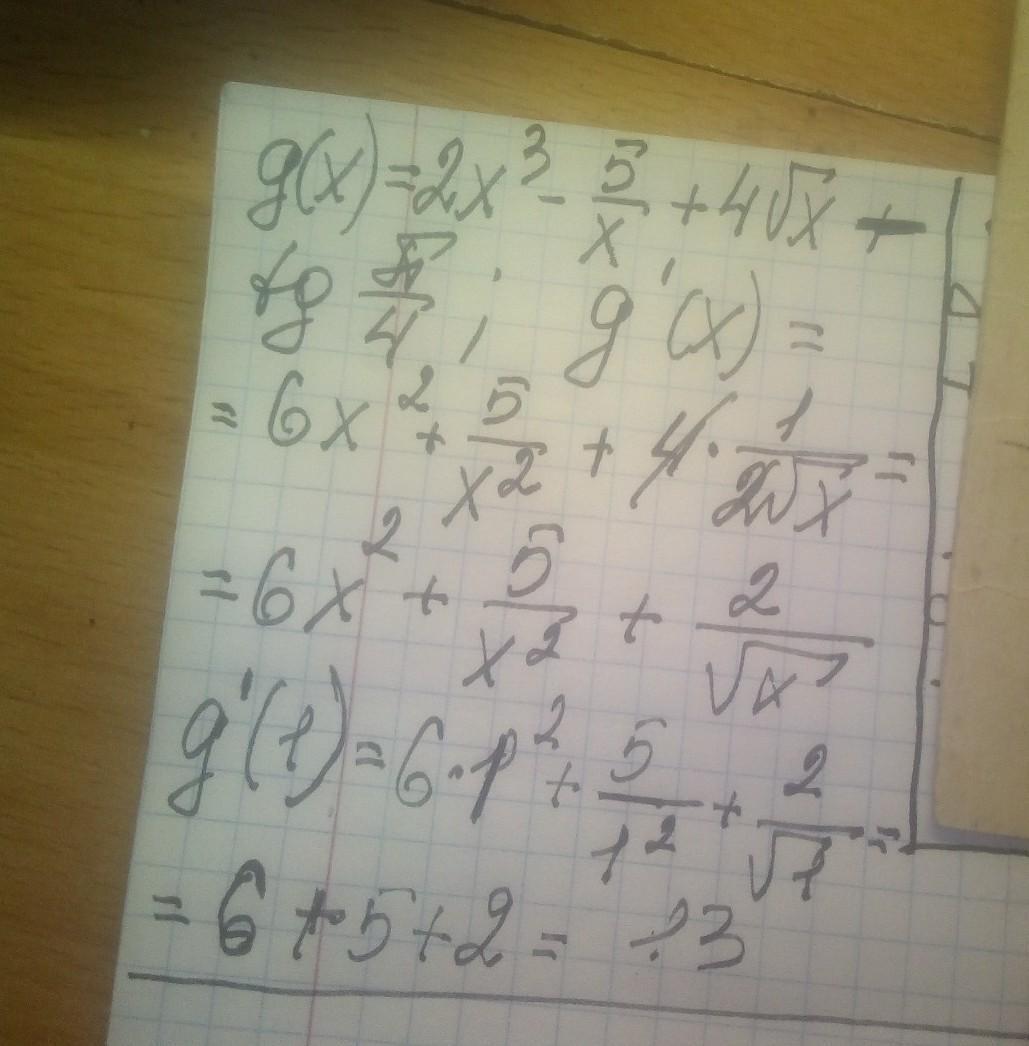 g(x)=2x³ - 5/x + 4√x +
tg π/4 ; g'(x) =
= 6x² + 5/x² + 4 · 1/2√x =
= 6x² + 5/x² + 2/√x
g'(1) = 6·1² + 5/1² + 2/√1 =
= 6 + 5 + 2 = 13